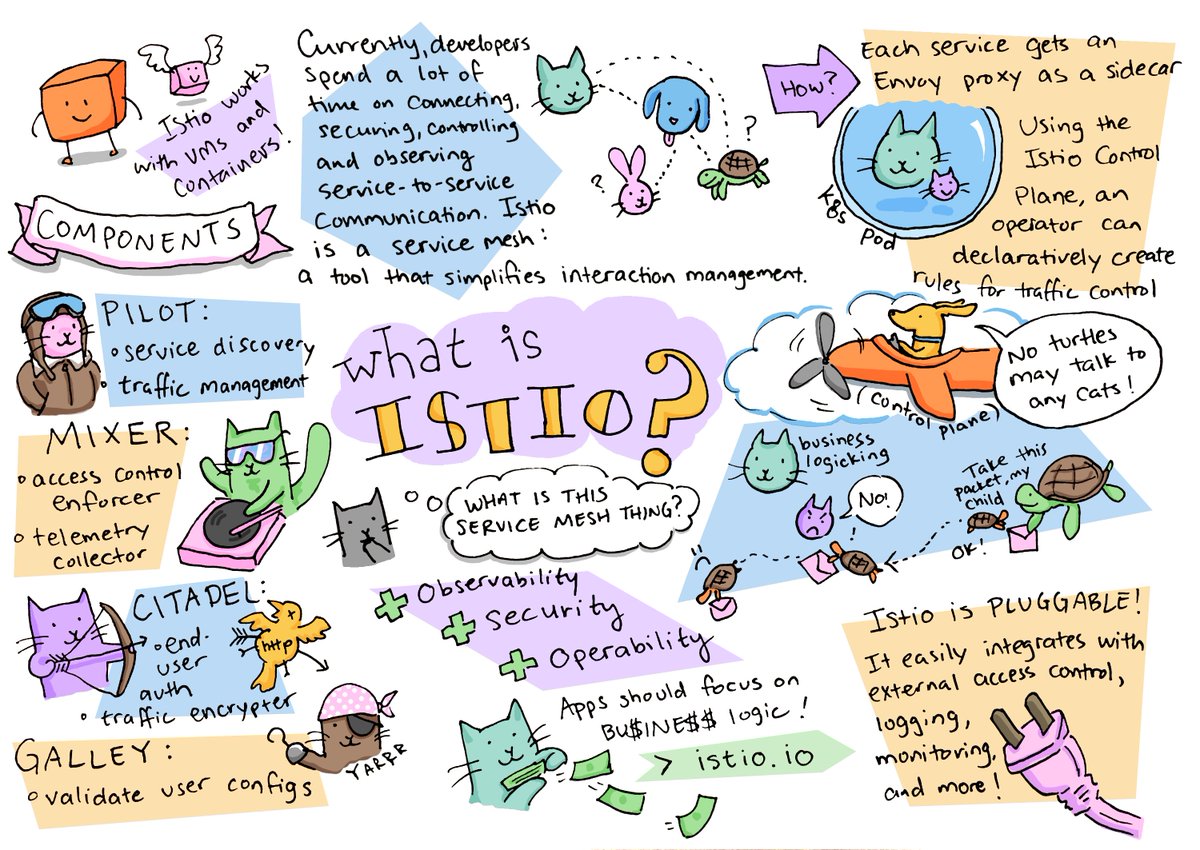 Istio works
with VMs and
containers!
COMPONENTS
Currently, developers
spend a lot of
time on connecting,
securing, controlling
and observing
service-to-service
communication. Istio
is a service mesh:
a tool that simplifies interaction management.
?
?
How?
Each service gets an
Envoy proxy as a sidecar
Using the
Istio Control
Plane, an
operator can
declaratively create
rules for traffic control
k8s
pod
PILOT:
service discovery
traffic management
MIXER:
access control
enforcer
telemetry
collector
CITADEL:
end-
user
auth
traffic encrypter
http
GALLEY:
validate user configs
YARRR
what is
ISTIO?
WHAT IS THIS
SERVICE MESH THING?
+ Observability
+ Security
+ Operability
Apps should focus on
BU$INE$$ logic!
> istio.io
(control plane)
No turtles
may talk to
any cats!
business
logicking
NO!
Take this
packet, my
child
OK!
Istio is PLUGGABLE!
It easily integrates with
external access control,
logging,
monitoring,
and more!